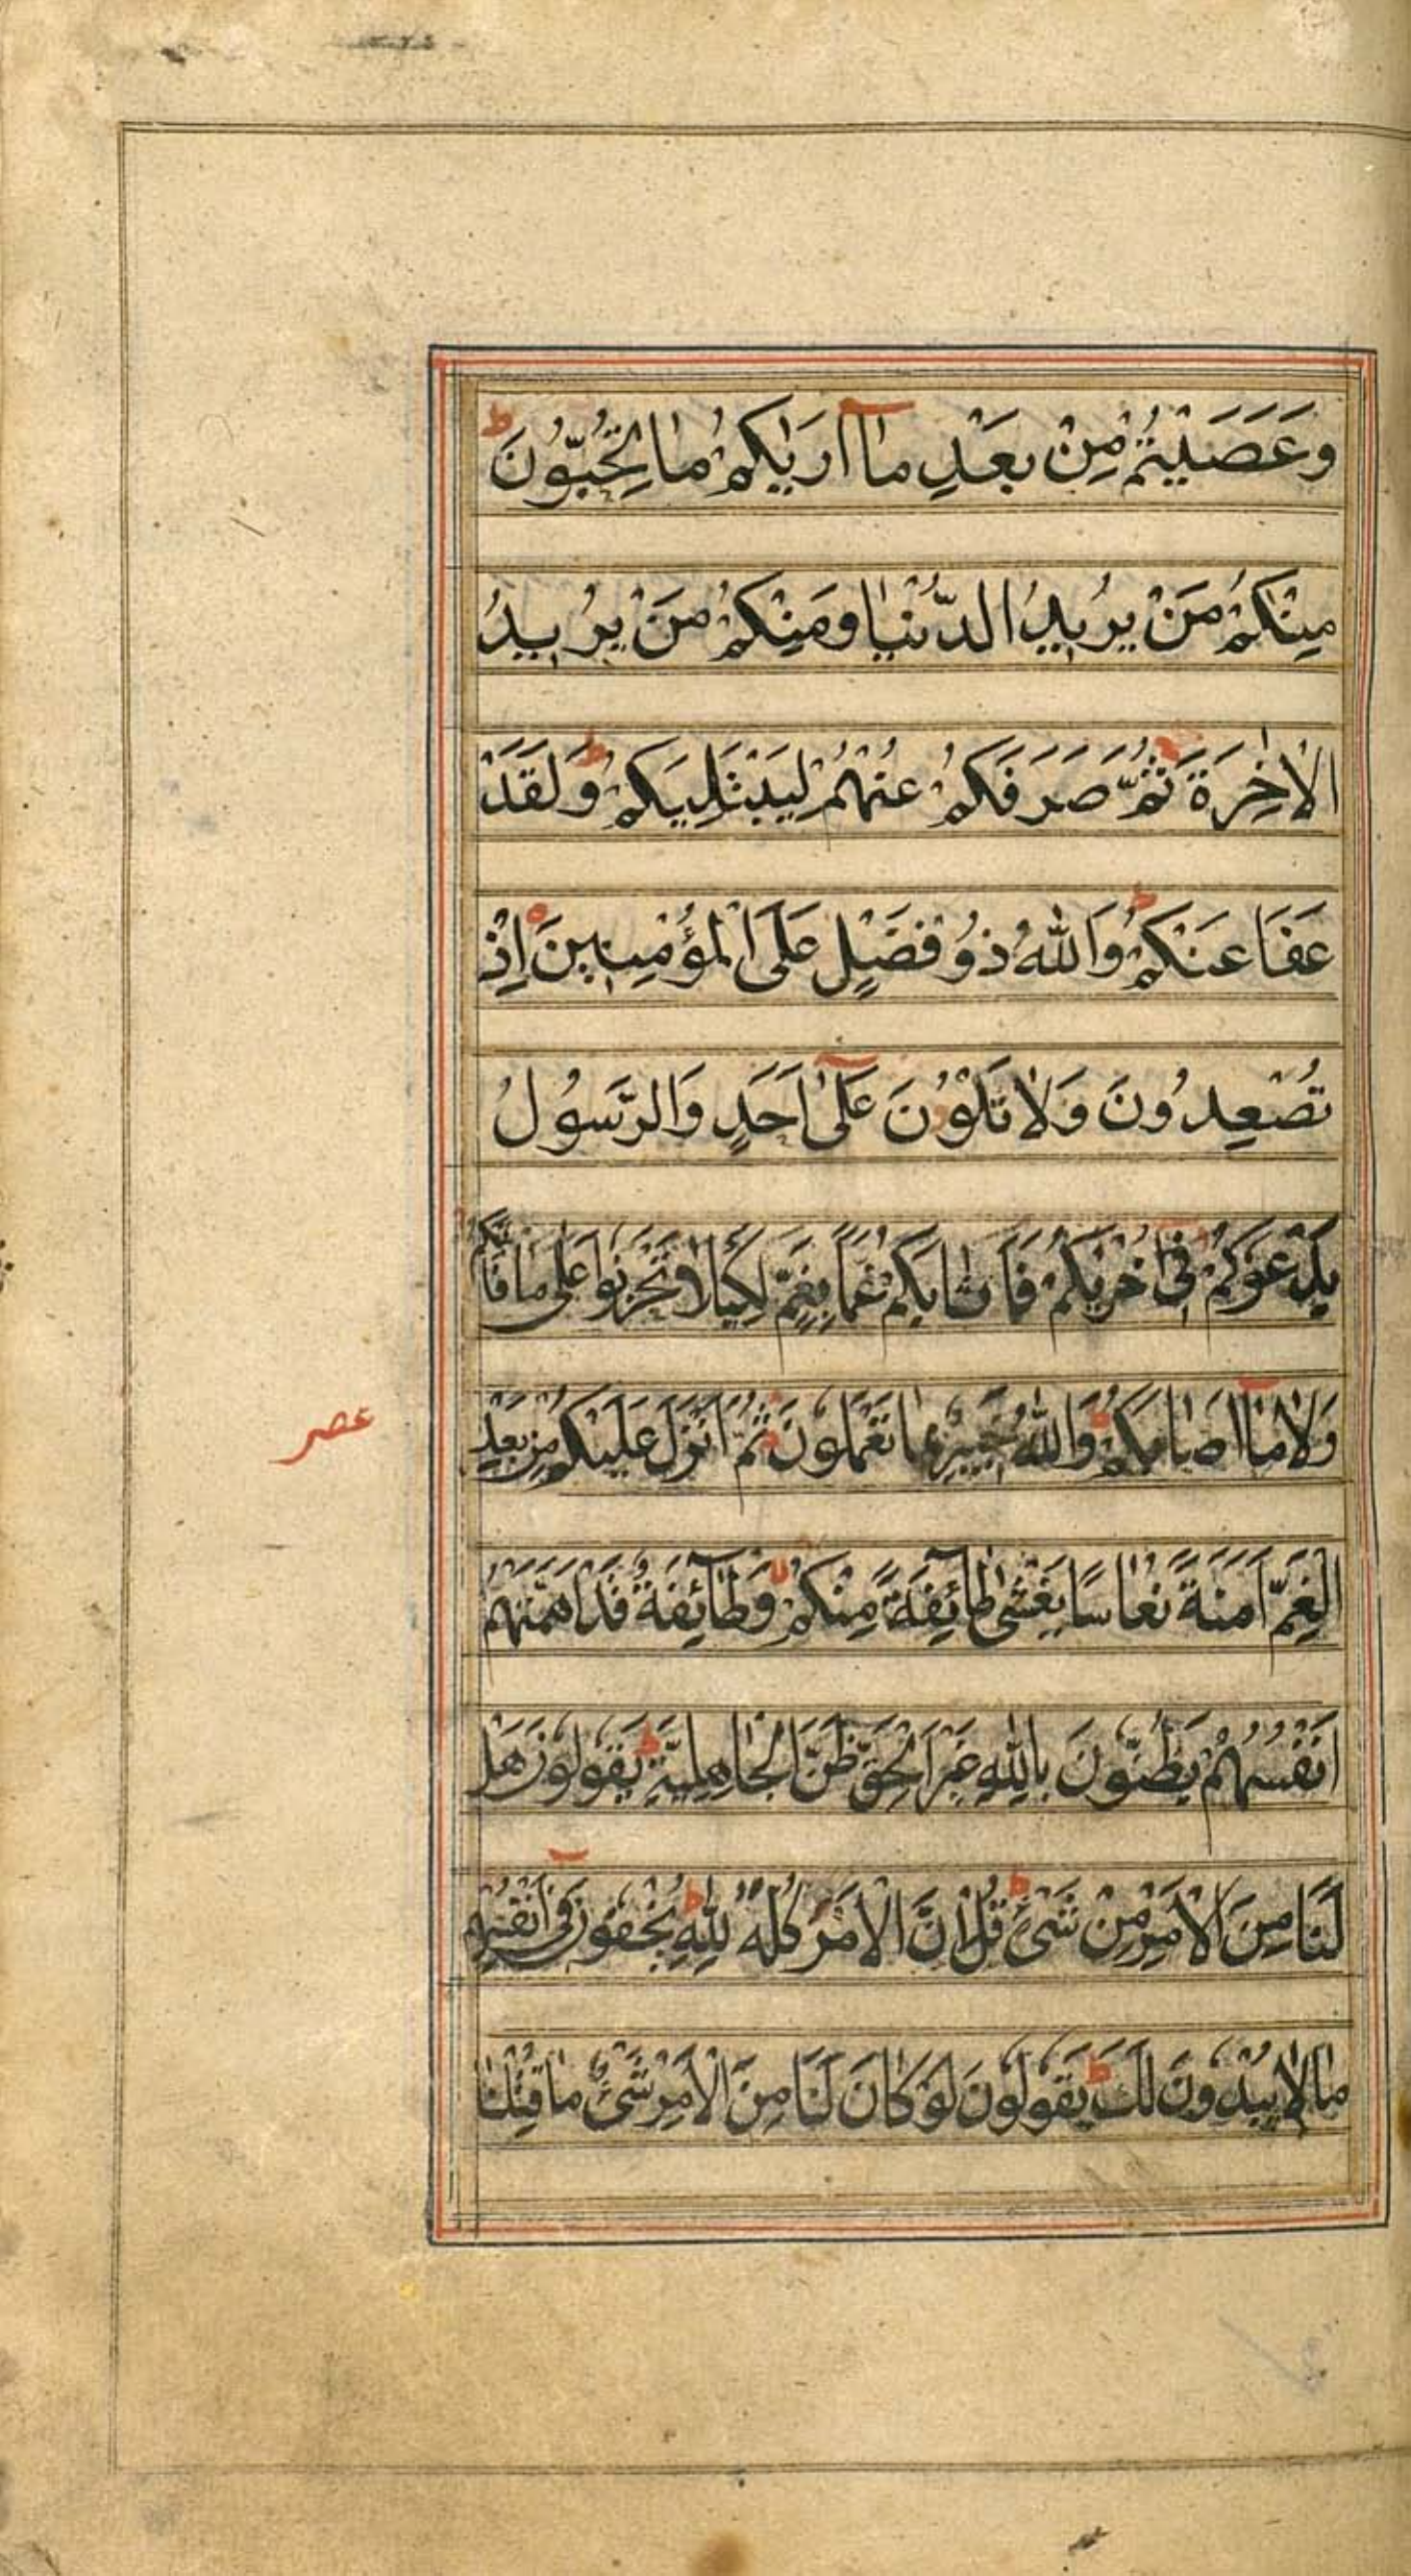 وَعَصَيْتُمْ مِنْ بَعْدِ مَآ اَرٰىكُمْ مَا تُحِبُّوْنَ ط
مِنْكُمْ مَنْ يُرِيْدُ الدُّنْيَا وَمِنْكُمْ مَنْ يُرِيْدُ
الْاٰخِرَةَ ثُمَّ صَرَفَكُمْ عَنْهُمْ لِيَبْتَلِيَكُمْ ط وَلَقَدْ
عَفَا عَنْكُمْ ط وَاللّٰهُ ذُوْ فَضْلٍ عَلَى الْمُؤْمِنِيْنَ اِذْ
تُصْعِدُوْنَ وَلَا تَلْوٗنَ عَلٰٓى اَحَدٍ وَالرَّسُوْلُ
يَدْعُوْكُمْ فِيْ اُخْرٰىكُمْ فَاَثَابَكُمْ غَمًّا بِغَمٍّ لِكَيْلَا تَحْزَنُوْا عَلٰى مَا فَاتَكُمْ
وَلَا مَآ اَصَابَكُمْ ط وَاللّٰهُ خَبِيْرٌ بِمَا تَعْمَلُوْنَ ثُمَّ اَنْزَلَ عَلَيْكُمْ مِنْ بَعْدِ
الْغَمِّ اَمَنَةً نُعَاسًا يَغْشٰى طَآئِفَةً مِنْكُمْ لا وَطَآئِفَةٌ قَدْ اَهَمَّتْهُمْ
اَنْفُسُهُمْ يَظُنُّوْنَ بِاللّٰهِ غَيْرَ الْحَقِّ ظَنَّ الْجَاهِلِيَّةِ ط يَقُوْلُوْنَ هَلْ
لَنَا مِنَ الْاَمْرِ مِنْ شَيْءٍ ط قُلْ اِنَّ الْاَمْرَ كُلَّهٗ لِلّٰهِ ط يُخْفُوْنَ فِيْٓ اَنْفُسِهِمْ
مَا لَا يُبْدُوْنَ لَكَ ط يَقُوْلُوْنَ لَوْ كَانَ لَنَا مِنَ الْاَمْرِ شَيْءٌ مَا قُتِلْنَا
عصر